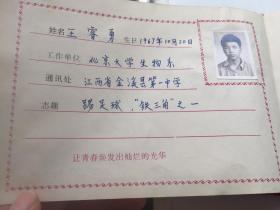 姓名 王睿勇 生日 1967年10月20日
工作单位 北京大学生物系
通讯处 江西省金溪县第一中学
志趣 踢足球，"铁三角"之一
让青春焕发出灿烂的光华